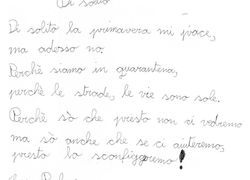 Di solito
Di solito la primavera mi piace,
ma adesso no.
Perchè siamo in quarantena,
perchè le strade, le vie sono sole.
Perchè sò che presto non ci vedremo
ma sò anche che se ci aiuteremo,
presto lo sconfiggeremo!